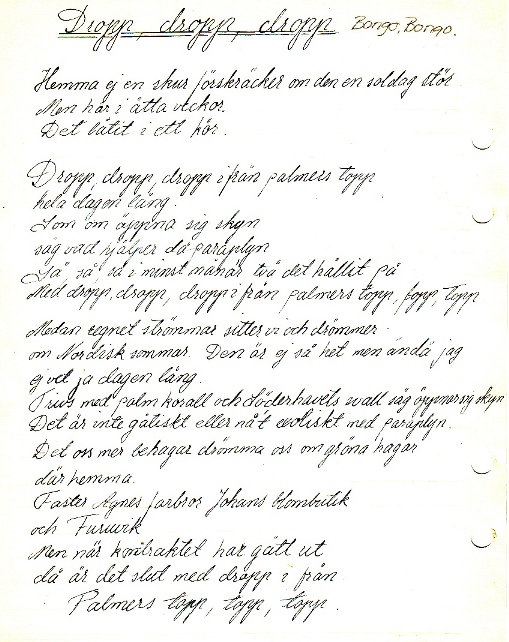 Dropp, dropp, dropp Bongo, Bongo.
Hemma ej en skur förskräcker om den en soldag stör
Men här i åtta veckor.
Det låtit i ett kör.
Dropp, dropp, dropp ifrån palmers topp
hela dagen lång.
Som om öppna sig skyn
säg vad hjälper då paraplyn
Ja så så i minst månar två det hållit på
Med dropp, dropp, dropp ifrån palmers topp, topp, topp
Medan regnet strömmar sitter vi och drömmer
om Nordisk sommar. Den är ej så het men ändå jag
ej vet ja dagen lång.
Trivs med palm korall och Söderhavets svall säg öppnersig skyn
Det är inte gåtiskt eller nå't exotiskt med paraplyn.
Det oss mer behagar drömma oss om gröna hagar
där hemma.
Faster Agnes farbror Johans blombutik
och Furuvik
Men när kontraktet har gått ut
då är det slut med dropp i från
Palmers topp, topp, topp.